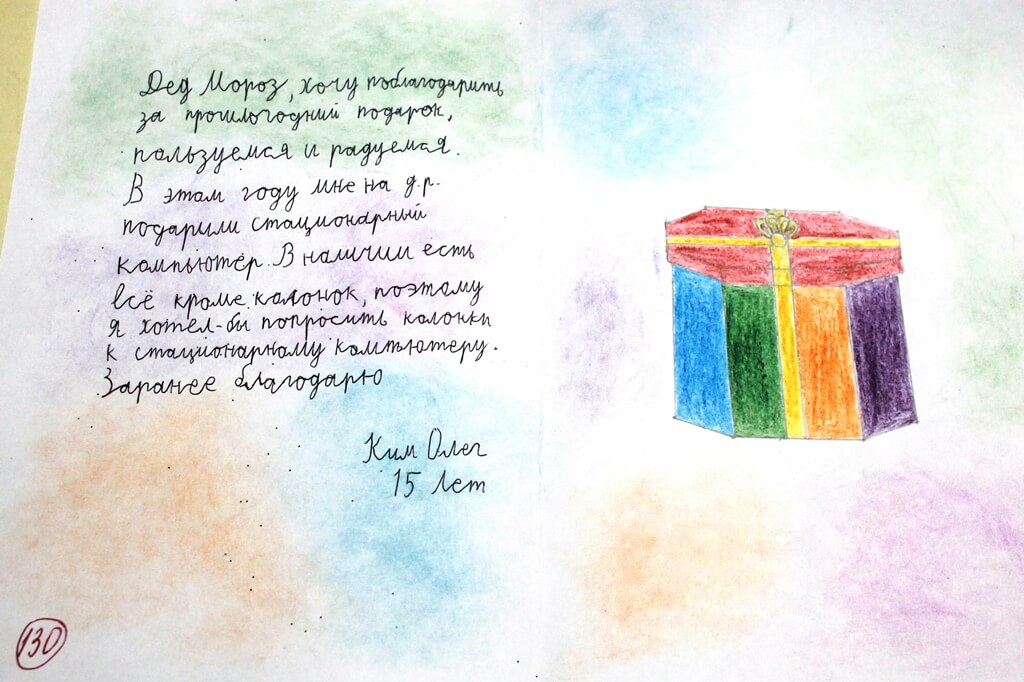 Дед Мороз, хочу поблагодарить
за прошлогодний подарок,
пользуемся и радуемся.
В этом году мне на д.р.
подарили стационарный
компьютер. В наличии есть
всё кроме колонок, поэтому
я хотел-бы попросить колонки
к стационарному компьютеру.
Заранее благодарю
Ким Олег
15 лет
130